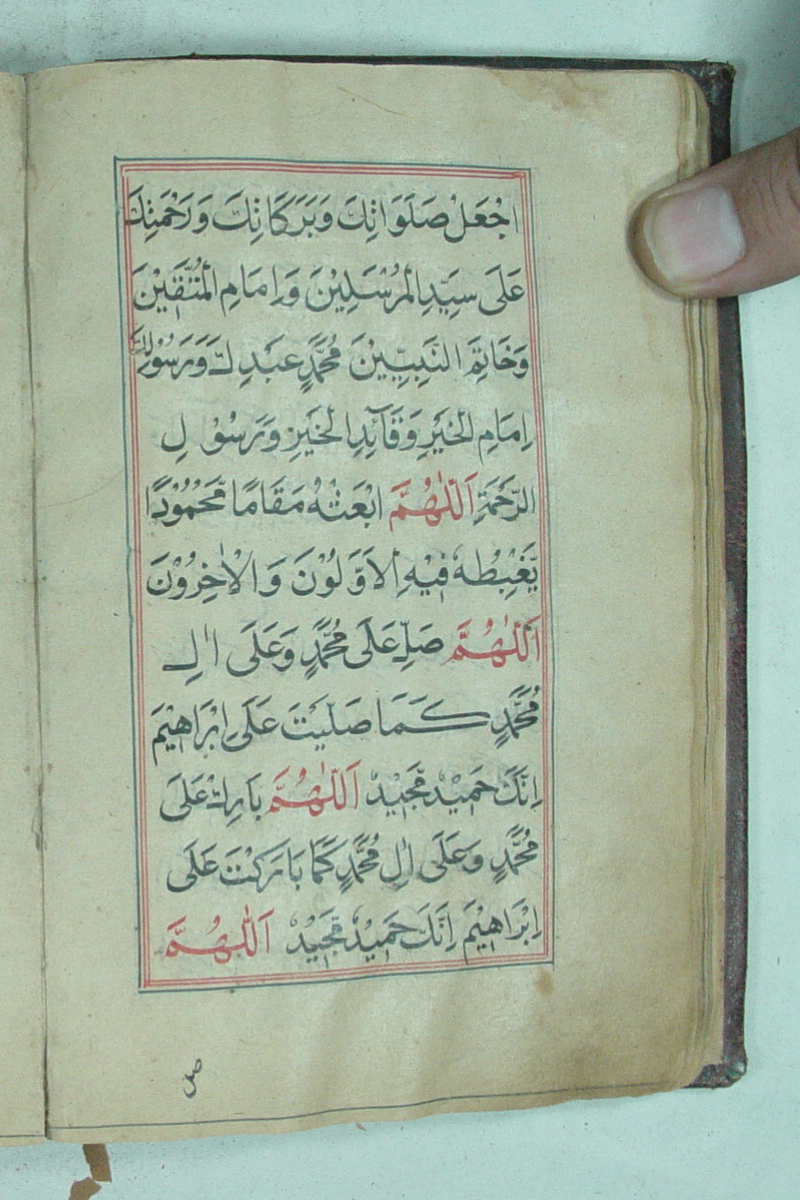 اجْعَلْ صَلَوَاتِكَ وَبَرَكَاتِكَ وَرَحْمَتِكَ
عَلَى سَيِّدِ الْمُرْسَلِيْنَ وَاِمَامِ الْمُتَّقِيْنَ
وَخَاتِمَ النَّبِيِّيْنَ مُحَمَّدٍ عَبْدِكَ وَرَسُوْلِكَ
اِمَامِ الْخَيْرِ وَقَآئِدِ الْخَيْرِ وَرَسُوْلِ
الرَّحْمَةِ اَللّٰهُمَّ ابْعَثْهُ مَقَامًا مَّحْمُوْدًا
يَّغْبِطُهٗ فِيْهِ الْاَوَّلُوْنَ وَالْاٰخِرُوْنَ
اَللّٰهُمَّ صَلِّ عَلَى مُحَمَّدٍ وَعَلَى اٰلِ
مُحَمَّدٍ كَمَا صَلَّيْتَ عَلَى اِبْرَاهِيْمَ
اِنَّكَ حَمِيْدٌ مَّجِيْدٌ اَللّٰهُمَّ بَارِكْ عَلَى
مُحَمَّدٍ وَعَلَى اٰلِ مُحَمَّدٍ كَمَا بَارَكْتَ عَلَى
اِبْرَاهِيْمَ اِنَّكَ حَمِيْدٌ مَّجِيْدٌ اَللّٰهُمَّ
صل